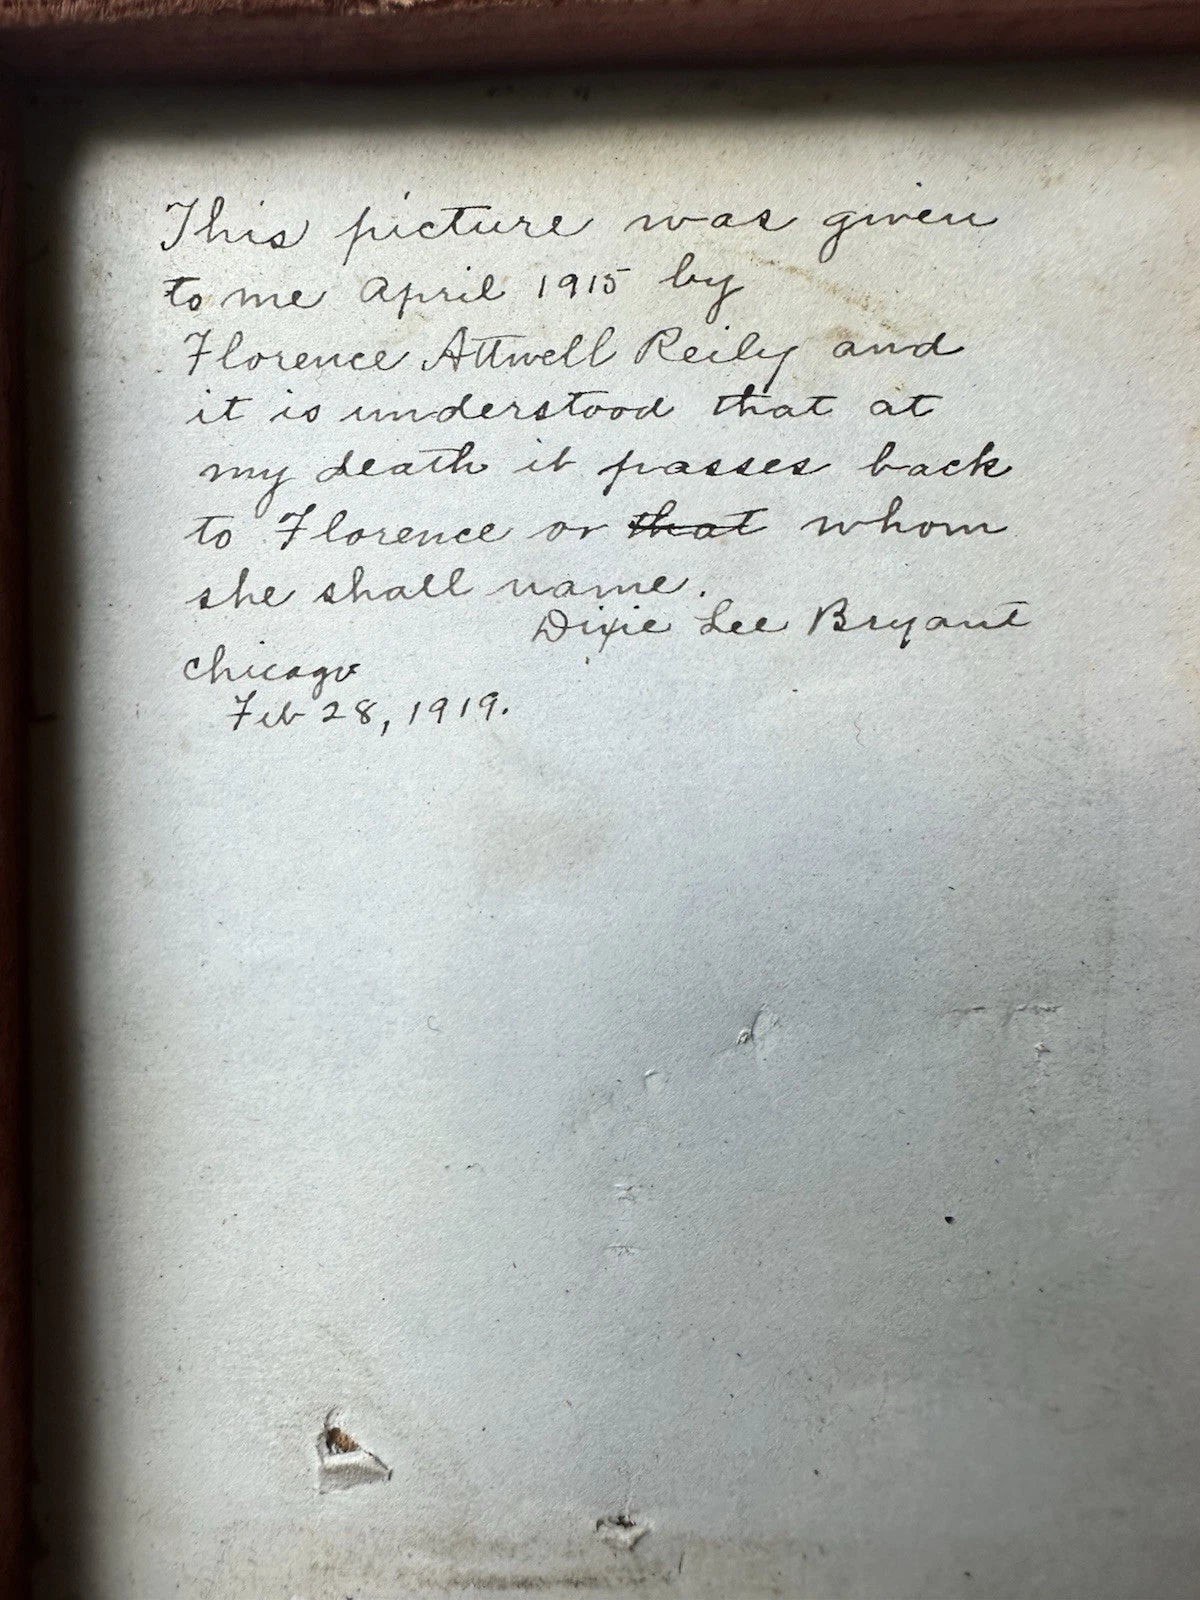 This picture was given
to me April 1915 by
Florence Attwell Reily and
it is understood that at
my death it passes back
to Florence or that whom
she shall name.
Dixie Lee Bryant
Chicago
Feb 28, 1919.